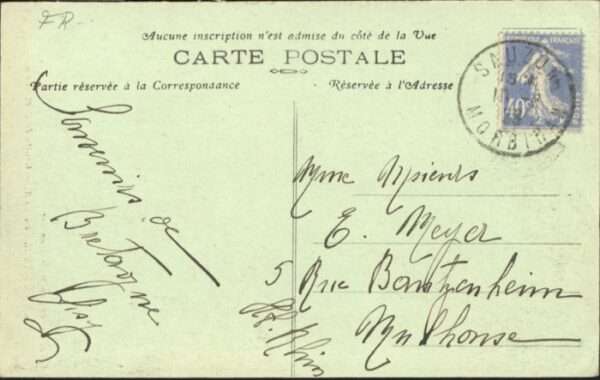 FR-
Aucune inscription n'est admise du côté de la Vue
CARTE POSTALE
Partie réservée à la Correspondance
Réservée à l'Adresse
Souvenirs de
Bretagne
Mme
E. Meyer
5 Rue Bantzenheim
Mulhouse
Ht. Rhin
SAUZON
MORBIHAN
40c
FRANÇAISE
POSTES